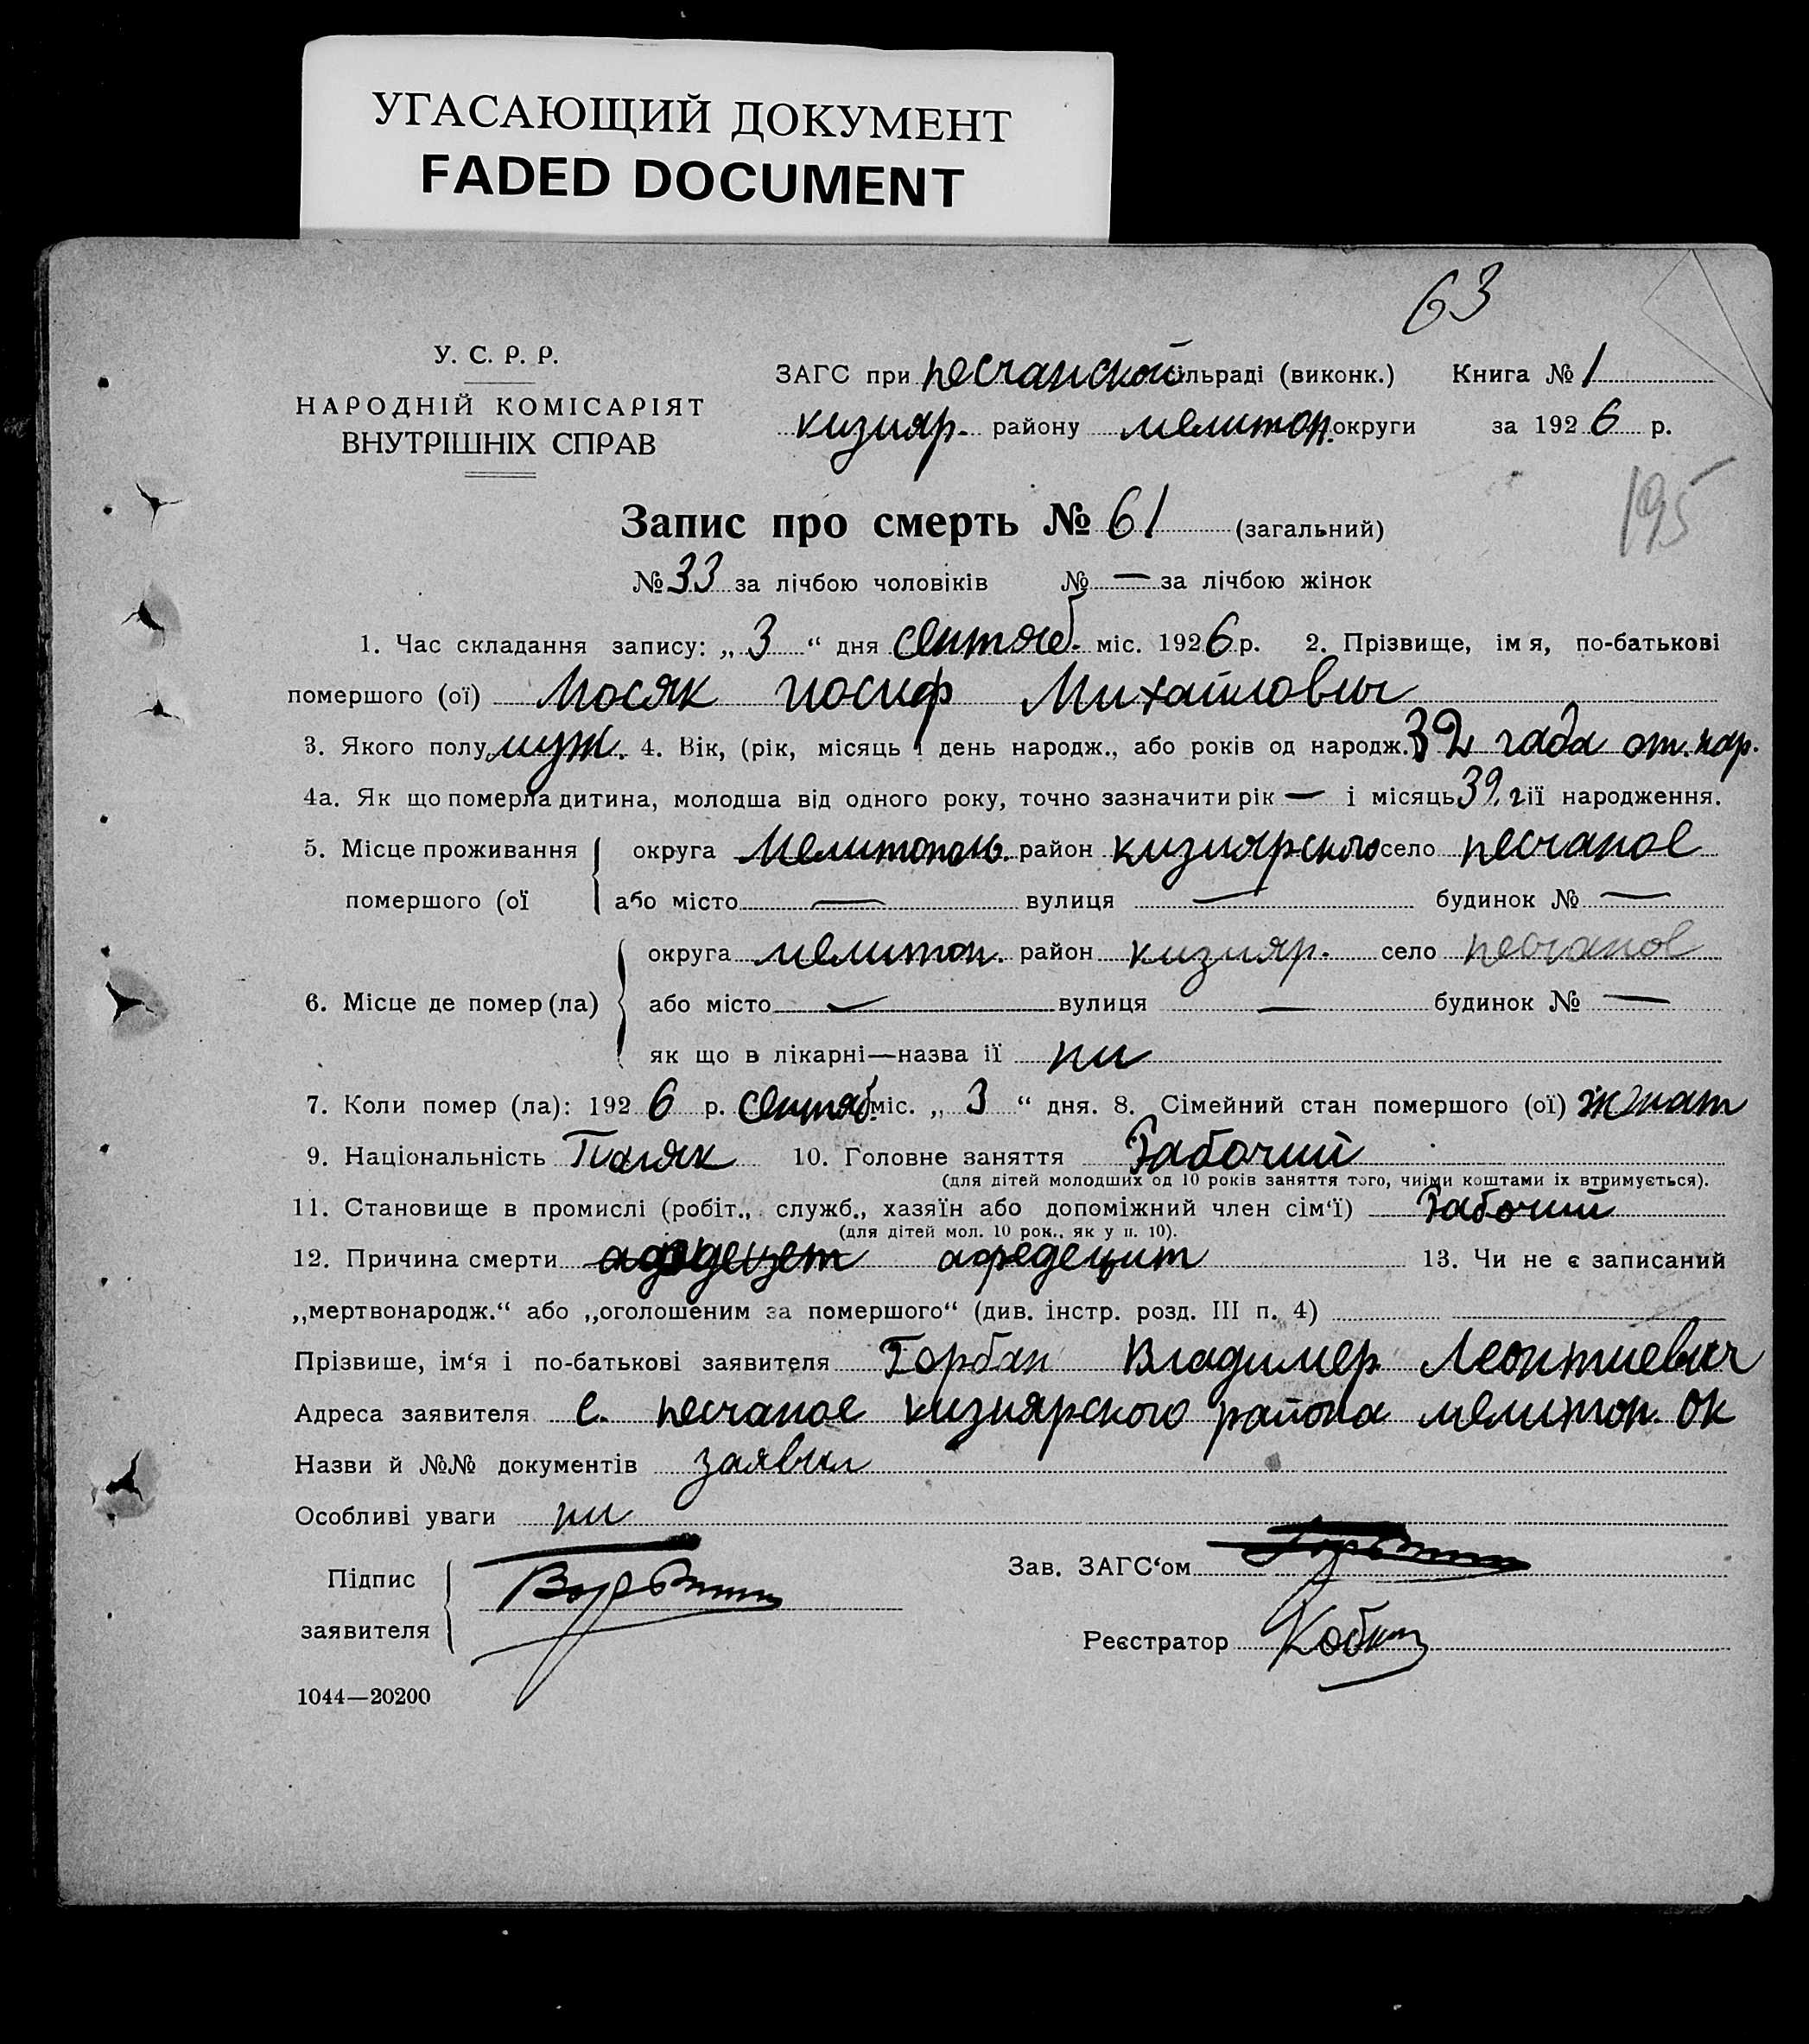 УГАСАЮЩИЙ ДОКУМЕНТ
FADED DOCUMENT
63
У. С. Р. Р.
НАРОДНІЙ КОМІСАРІЯТ
ВНУТРІШНІХ СПРАВ
ЗАГС при песчанской сільраді (виконк.) Книга № 1
кизияр. району мелитоп. округи за 1926 р.
195
Запис про смерть № 61 (загальний)
№ 33 за лічбою чоловіків № — за лічбою жінок
1. Час складання запису: „ 3 “ дня сентяб. міс. 1926 р. 2. Прізвище, ім я, по-батькові
помершого (ої) Мосяк иосиф Михайлович
3. Якого полу муж. 4. Вік, (рік, місяць і день народж., або років од народж. 32 года от. нар.
4а. Як що померла дитина, молодша від одного року, точно зазначити рік — і місяць 39. г ії народження.
5. Місце проживання округа Мелитополь. район кизиярского село песчаное
помершого (ої або місто — вулиця — будинок № —
округа мелитоп. район кизияр. село песчаное
6. Місце де помер (ла) або місто — вулиця — будинок № —
як що в лікарні—назва ії ни
7. Коли помер (ла): 1926 р. сентяб. міс. „ 3 “ дня. 8. Сімейний стан помершого (ої) женат
9. Національність Паляк 10. Головне заняття Рабочий
(для дітей молодших од 10 років заняття того, чиїми коштами їх втримується).
11. Становище в промислі (робіт., служб., хазяїн або допоміжний член сім‘ї) Рабочий
(для дітей мол. 10 рок., як у п. 10).
12. Причина смерти апредецит 13. Чи не є записаний
„мертвонародж.“ або „оголошеним за помершого“ (див. інстр. розд. III п. 4)
Прізвише, ім‘я і по-батькові заявителя Горбан Владимер Леонтиевич
Адреса заявителя с. песчаное кизиярского района мелитоп. ок
Назви й №№ документів заявил
Особливі уваги ни
Підпис
заявителя
Зав. ЗАГС‘ом
Реєстратор
1044—20200